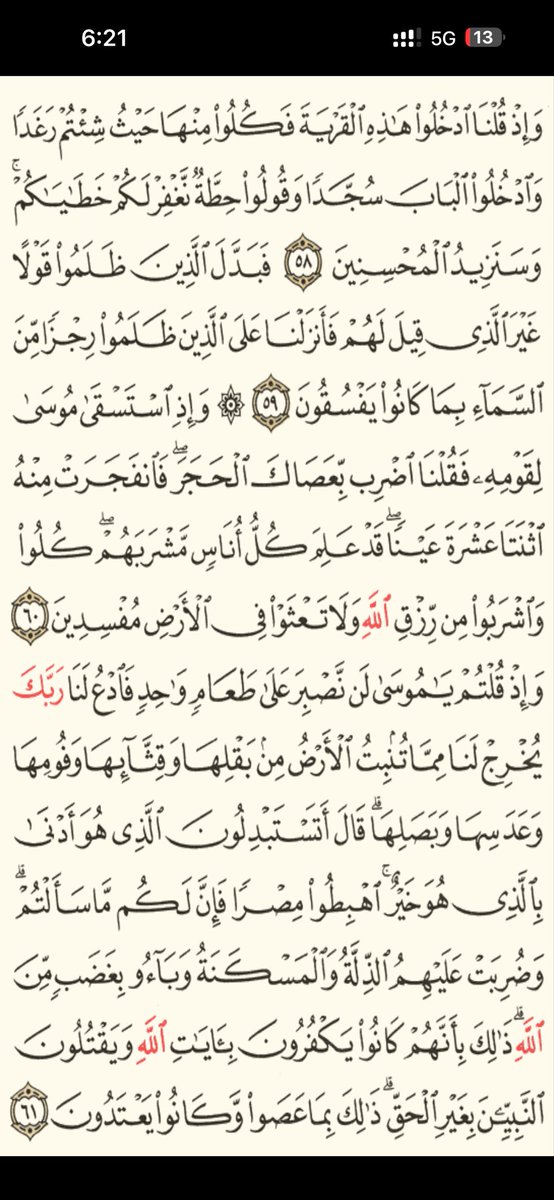 6:21 5G 13
وَإِذْ قُلْنَا ٱدْخُلُوا۟ هَـٰذِهِ ٱلْقَرْيَةَ فَكُلُوا۟ مِنْهَا حَيْثُ شِئْتُمْ رَغَدًا
وَٱدْخُلُوا۟ ٱلْبَابَ سُجَّدًا وَقُولُوا۟ حِطَّةٌ نَّغْفِرْ لَكُمْ خَطَـٰيَـٰكُمْ ۚ
وَسَنَزِيدُ ٱلْمُحْسِنِينَ ٥٨ فَبَدَّلَ ٱلَّذِينَ ظَلَمُوا۟ قَوْلًا
غَيْرَ ٱلَّذِى قِيلَ لَهُمْ فَأَنزَلْنَا عَلَى ٱلَّذِينَ ظَلَمُوا۟ رِجْزًا مِّنَ
ٱلسَّمَآءِ بِمَا كَانُوا۟ يَفْسُقُونَ ٥٩ ۞ وَإِذِ ٱسْتَسْقَىٰ مُوسَىٰ
لِقَوْمِهِۦ فَقُلْنَا ٱضْرِب بِّعَصَاكَ ٱلْحَجَرَ ۖ فَٱنفَجَرَتْ مِنْهُ
ٱثْنَتَا عَشْرَةَ عَيْنًا ۖ قَدْ عَلِمَ كُلُّ أُنَاسٍ مَّشْرَبَهُمْ ۖ كُلُوا۟
وَٱشْرَبُوا۟ مِن رِّزْقِ ٱللَّهِ وَلَا تَعْثَوْا۟ فِى ٱلْأَرْضِ مُفْسِدِينَ ٦٠
وَإِذْ قُلْتُمْ يَـٰمُوسَىٰ لَن نَّصْبِرَ عَلَىٰ طَعَامٍ وَٰحِدٍ فَٱدْعُ لَنَا رَبَّكَ
يُخْرِجْ لَنَا مِمَّا تُنۢبِتُ ٱلْأَرْضُ مِنۢ بَقْلِهَا وَقِثَّآئِهَا وَفُومِهَا
وَعَدَسِهَا وَبَصَلِهَا ۖ قَالَ أَتَسْتَبْدِلُونَ ٱلَّذِى هُوَ أَدْنَىٰ
بِٱلَّذِى هُوَ خَيْرٌ ۚ ٱهْبِطُوا۟ مِصْرًا فَإِنَّ لَكُم مَّا سَأَلْتُمْ ۗ
وَضُرِبَتْ عَلَيْهِمُ ٱلذِّلَّةُ وَٱلْمَسْكَنَةُ وَبَآءُو بِغَضَبٍ مِّنَ
ٱللَّهِ ۗ ذَٰلِكَ بِأَنَّهُمْ كَانُوا۟ يَكْفُرُونَ بِـَٔايَـٰتِ ٱللَّهِ وَيَقْتُلُونَ
ٱلنَّبِيِّـۧنَ بِغَيْرِ ٱلْحَقِّ ۗ ذَٰلِكَ بِمَا عَصَوا۟ وَّكَانُوا۟ يَعْتَدُونَ ٦١